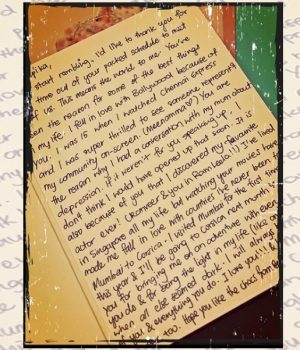 start rambling, I'd like to thank you for
time out of your packed schedule to meet
us. This means the world to me. You've
been the reason for some of the best things
in my life. I fell in love with Bollywood because of
you. I was 15 when I watched Chennai Express
and I was super thrilled to see someone represent
my community on-screen (Meenamma ♡) You are
the reason why I had a conversation with my mum about
depression. If it weren't for you speaking up, I
don't think I would have opened up that soon. It is
also because of you that I discovered my favourite
actor ever! (Ranveer & you in Ram Leela!!) I've lived
in Singapore all my life but watching your movies
made me fall in love with countries I've never been to
Mumbai to Corsica. I visited Mumbai for the first time
this year & I'll be going to Corsica next
you for bringing me on an adventure with
you do & for being the light in my life
when all else seemed dark. I will always
you & everything you do. I love you!!!
too. Hope you like the chocs from